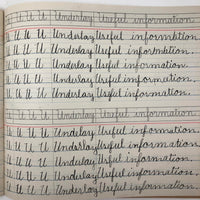 U U U U Underlay Useful information.
U U U U Underlay Useful information.
U U U U Underlay Useful information.
U U U U Underlay Useful information.
U U U U Underlay Useful information.
U U U U Underlay Useful information.
U U U U Underlay Useful information.
U U U U Underlay Useful information.
U U U U Underlay Useful information.
U U U U Underlay Useful information.
U U U U Underlay Useful information.
U U U U Underlay Useful information.